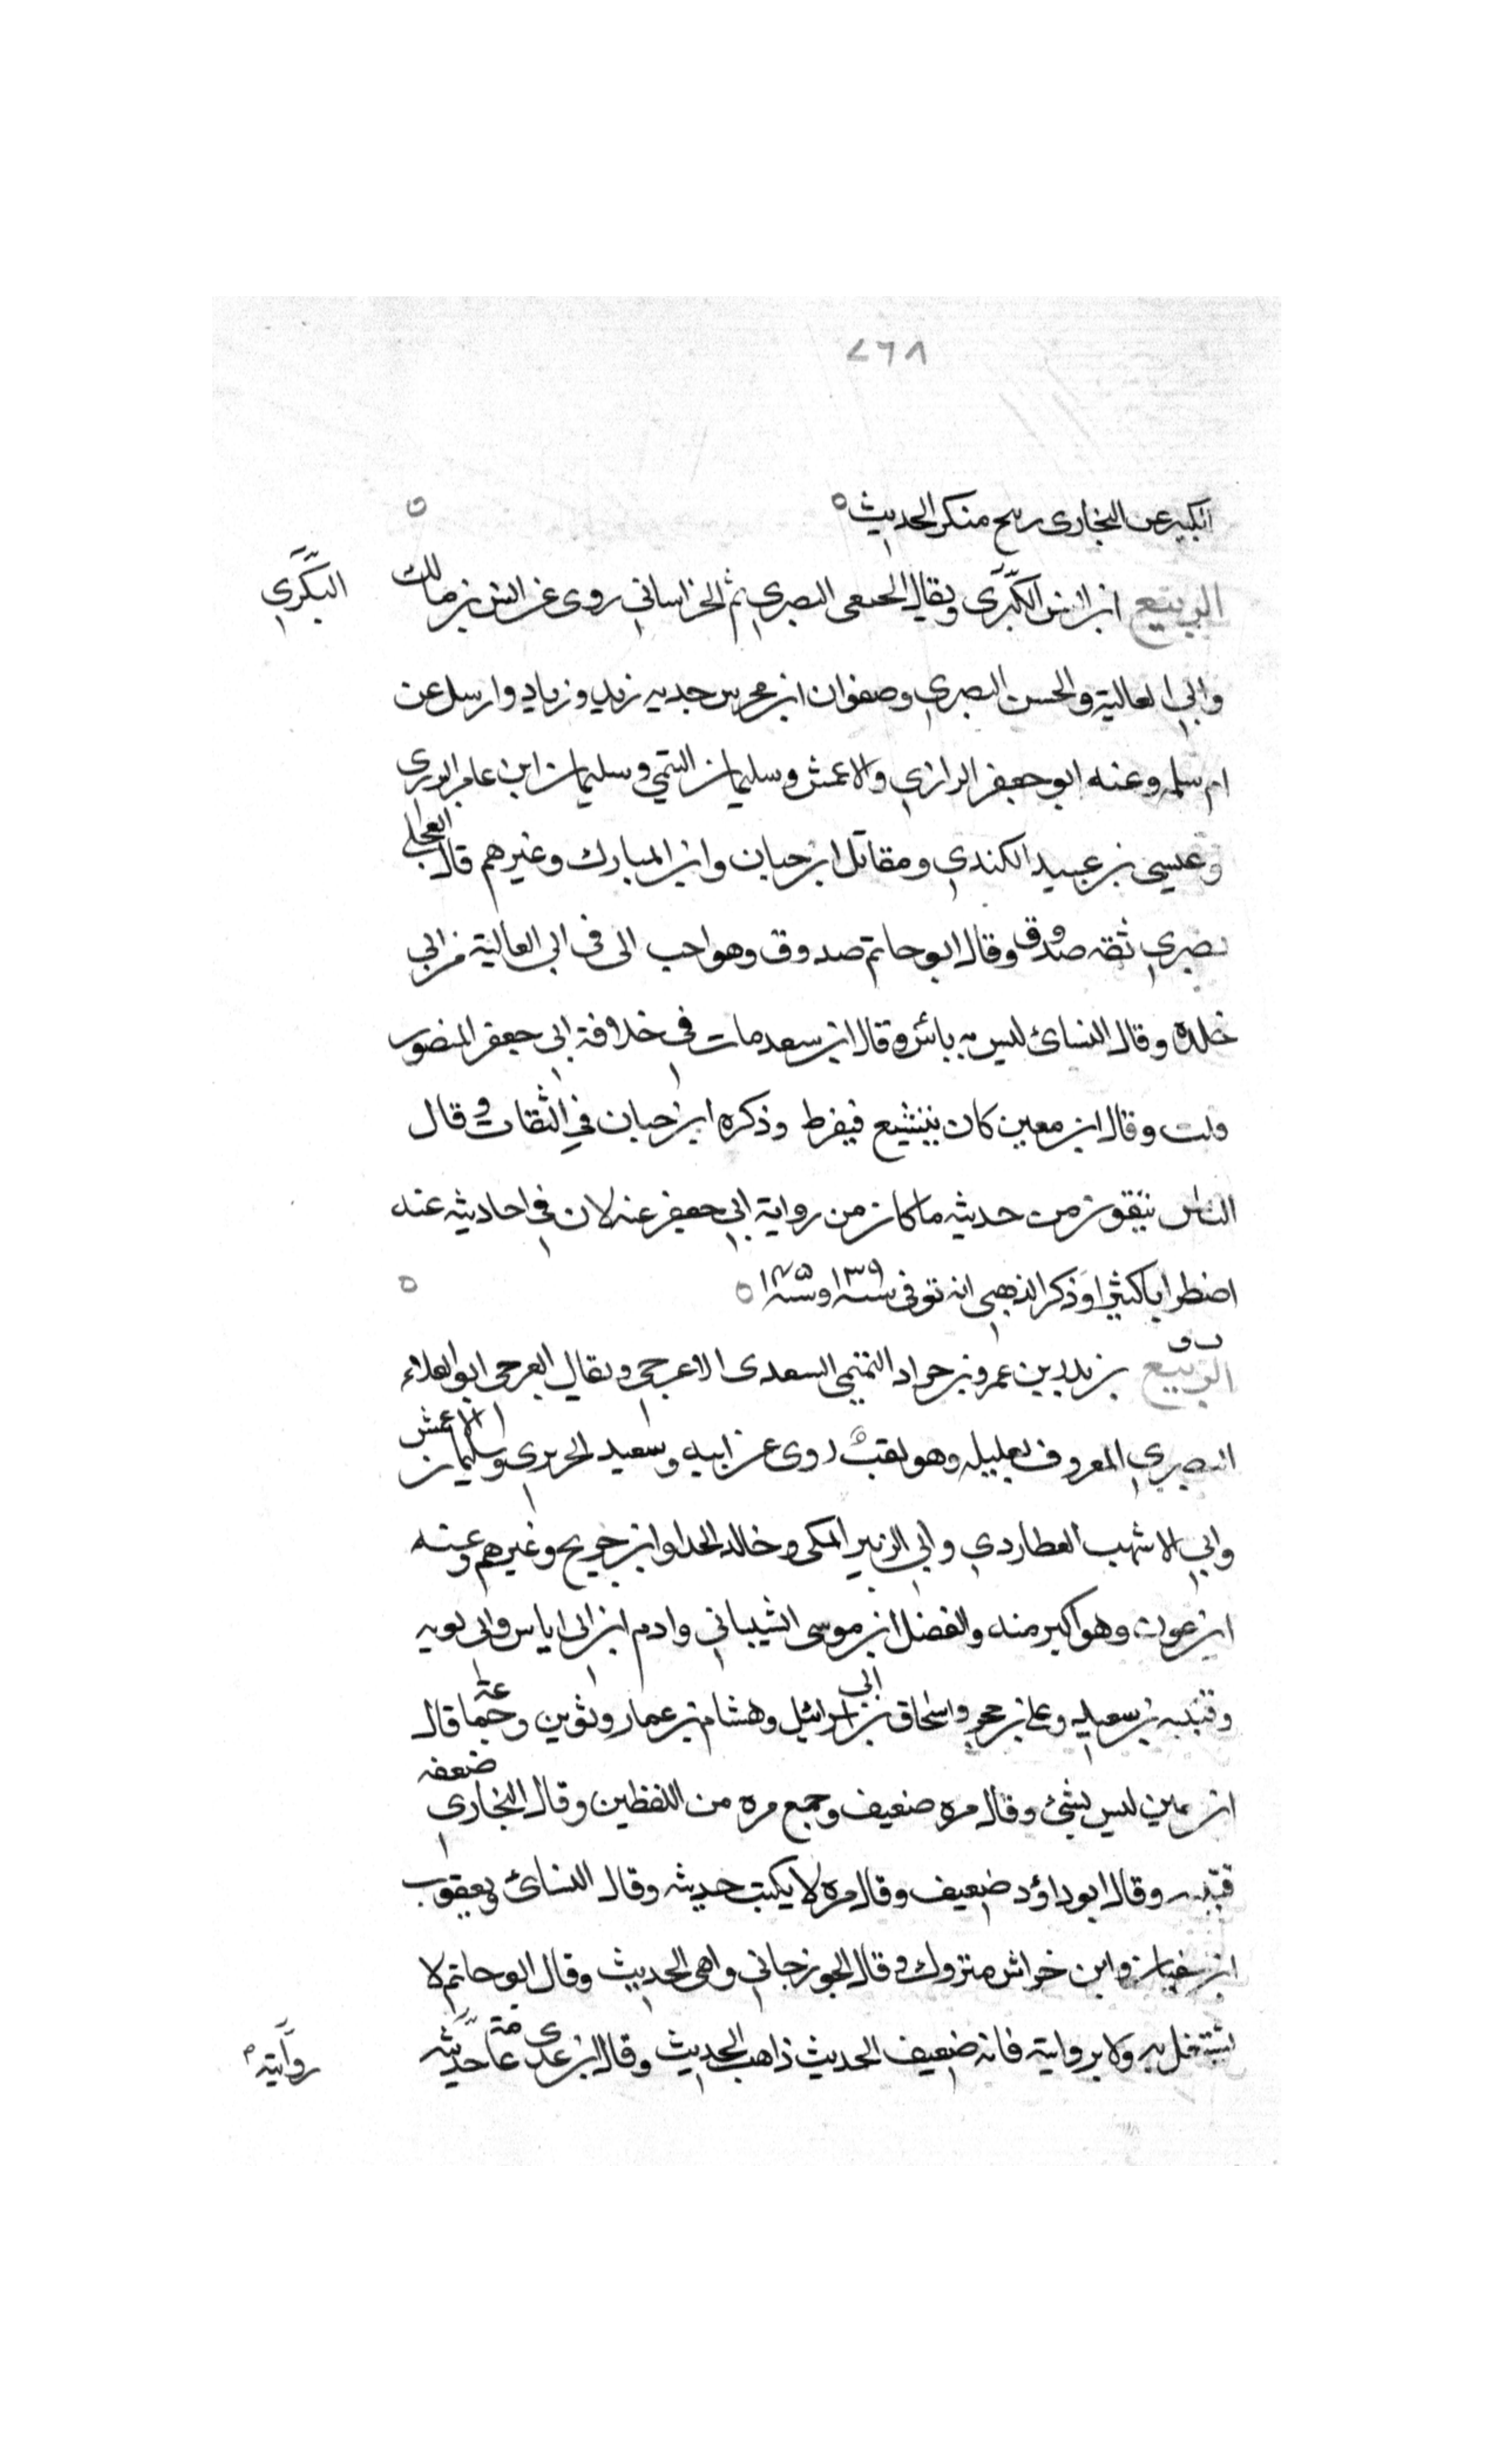 ٢٦٨
الكبير عن البخارى ربيح منكر الحديث ه
الربيع ابن انس البكرى ويقال الحنفى البصري ثم الخراساني روى عن انس بن مالك
البكري
وابي العالية والحسن البصري وصفوان ابن محرز وجديه زيد وزياد وارسل عن
ام سلمه وعنه ابو جعفر الرازي والاعمش وسليمان التيمي وسليمان ابن عامر البرزى
وعيسى بن عبيد الكندي ومقاتل ابن حبان وابن المبارك وغيرهم قال العجلي
بصري ثقه صدوق وقال ابو حاتم صدوق وهو احب الى فى ابى العالية من ابي
خلده وقال النسائ ليس به بائس وقال ابن سعد مات في خلافة ابي جعفر المنصور
قلت وقال ابن معين كان يتشيع فيفرط وذكره ابن حبان في الثقات وقال
الناس يتقون من حديثه ما كان من رواية ابي جعفر عنه لان في احاديثه عنه
اضطرابا كثيرا وذكر الذهبي انه توفى سنة ١٣٩ او سنة ه
ت ق
الربيع بن بدر بن عمرو بن جراد التميمي السعدى الاعرجي ويقال العرجى ابو العلاء
البصري المعروف بعليله وهو لقب روى عن ابيه وسعيد الجريري وسليمان الاعمش
وابي الاشهب العطاردي وابي الزبير المكى وخالد الحذا وابن جريج وغيرهم وعنه
ابن عون وهو اكبر منه والفضل ابن موسى الشيباني وادم ابن ابى اياس وابى توبه
وقتيبه بن سعيد وعلي بن حجر واسحاق بن ابى اسرائيل وهشام بن عمار ولوين وجماعة قال
ابن معين ليس بشئ وقال مره ضعيف وجمع مره من اللفظين وقال البخاري ضعفه
قتيبه وقال ابو داؤد ضعيف وقال مرة لا يكتب حديثه وقال النسائ ويعقوب
ابن سفيان وابن خراش متروك وقال الجوزجاني واهى الحديث وقال ابو حاتم لا
يشتغل به ولا بروايته فانه ضعيف الحديث ذاهب الحديث وقال ابن عدى عامة حديثه
روايته